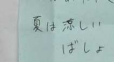 夏は涼しい
ばしょ